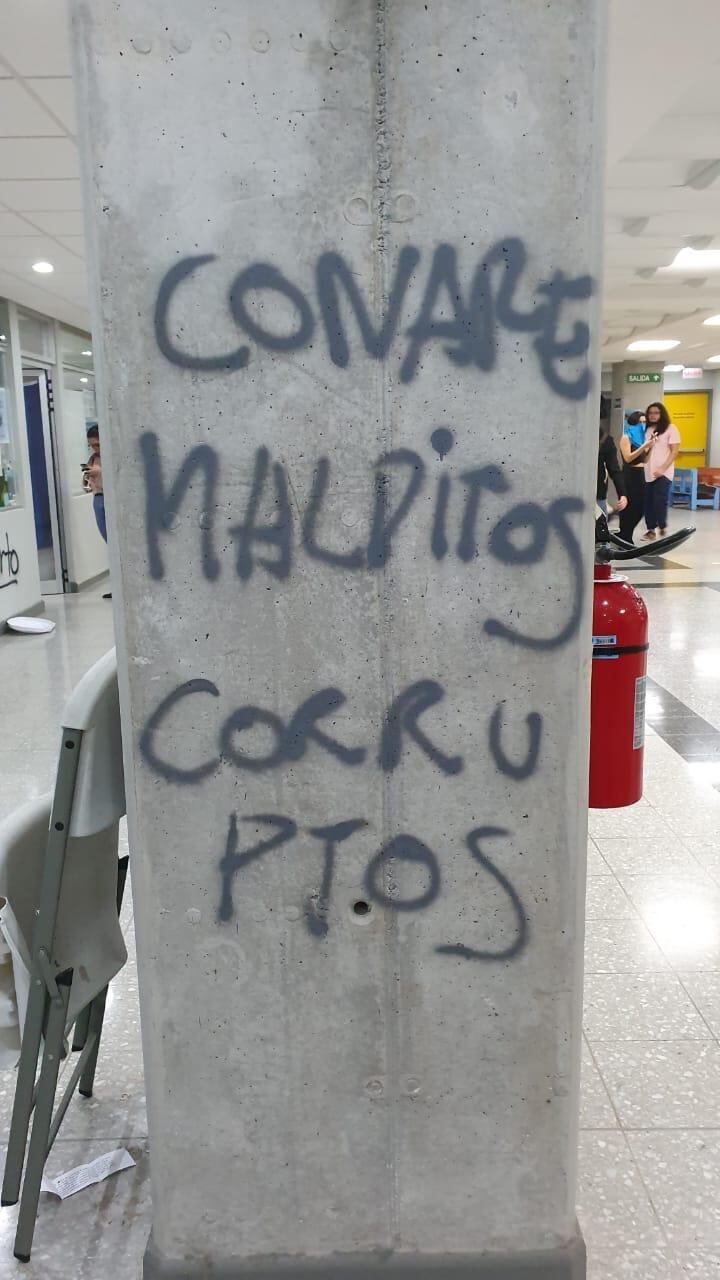 CONARE
MALDiTOS
CORRU
PTOS
SALIDA